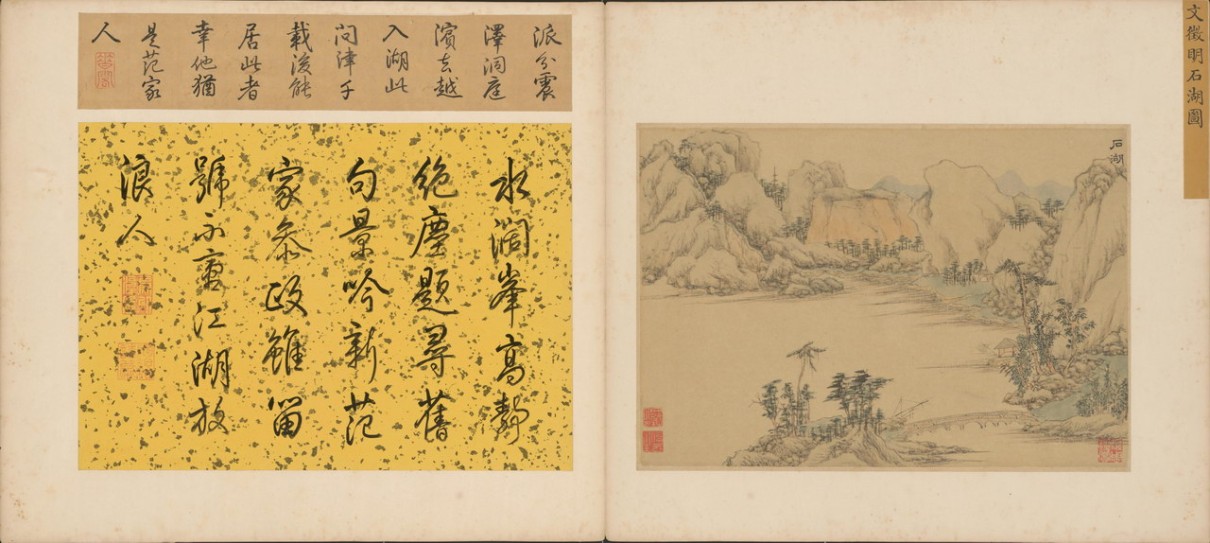 文徵明石湖圖
石湖
派分震
澤洞庭
濱去越
入湖此
问津千
載後能
居此者
幸他猶
是范家
人
水闊峯高静
絶塵題尋舊
句景吟新范
家叅政雖留
號不啻江湖放
浪人